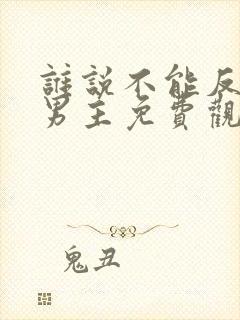 誰說不能反
男主免費觀
鬼丑